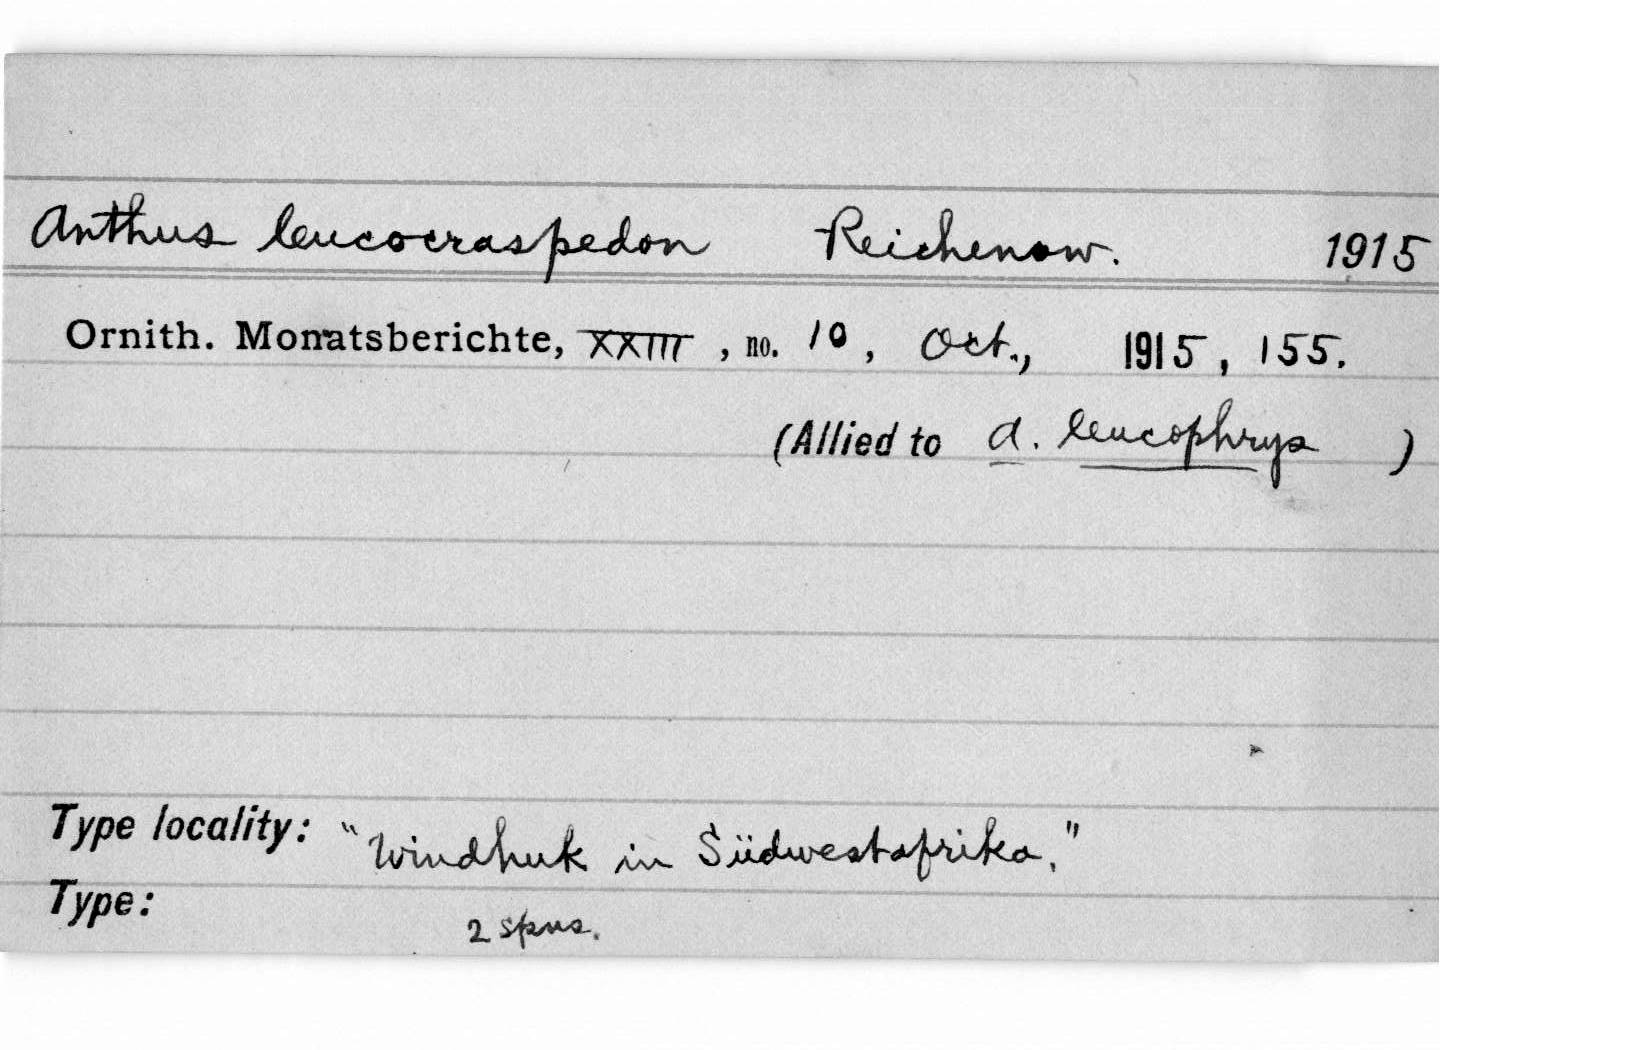 Anthus leucocraspedon Reichenow. 1915
Ornith. Monatsberichte, XXIII, no. 10, Oct., 1915, 155.
(Allied to A. leucophrys )
Type locality: "Windhuk in Südwestafrika."
Type: 2 spms.